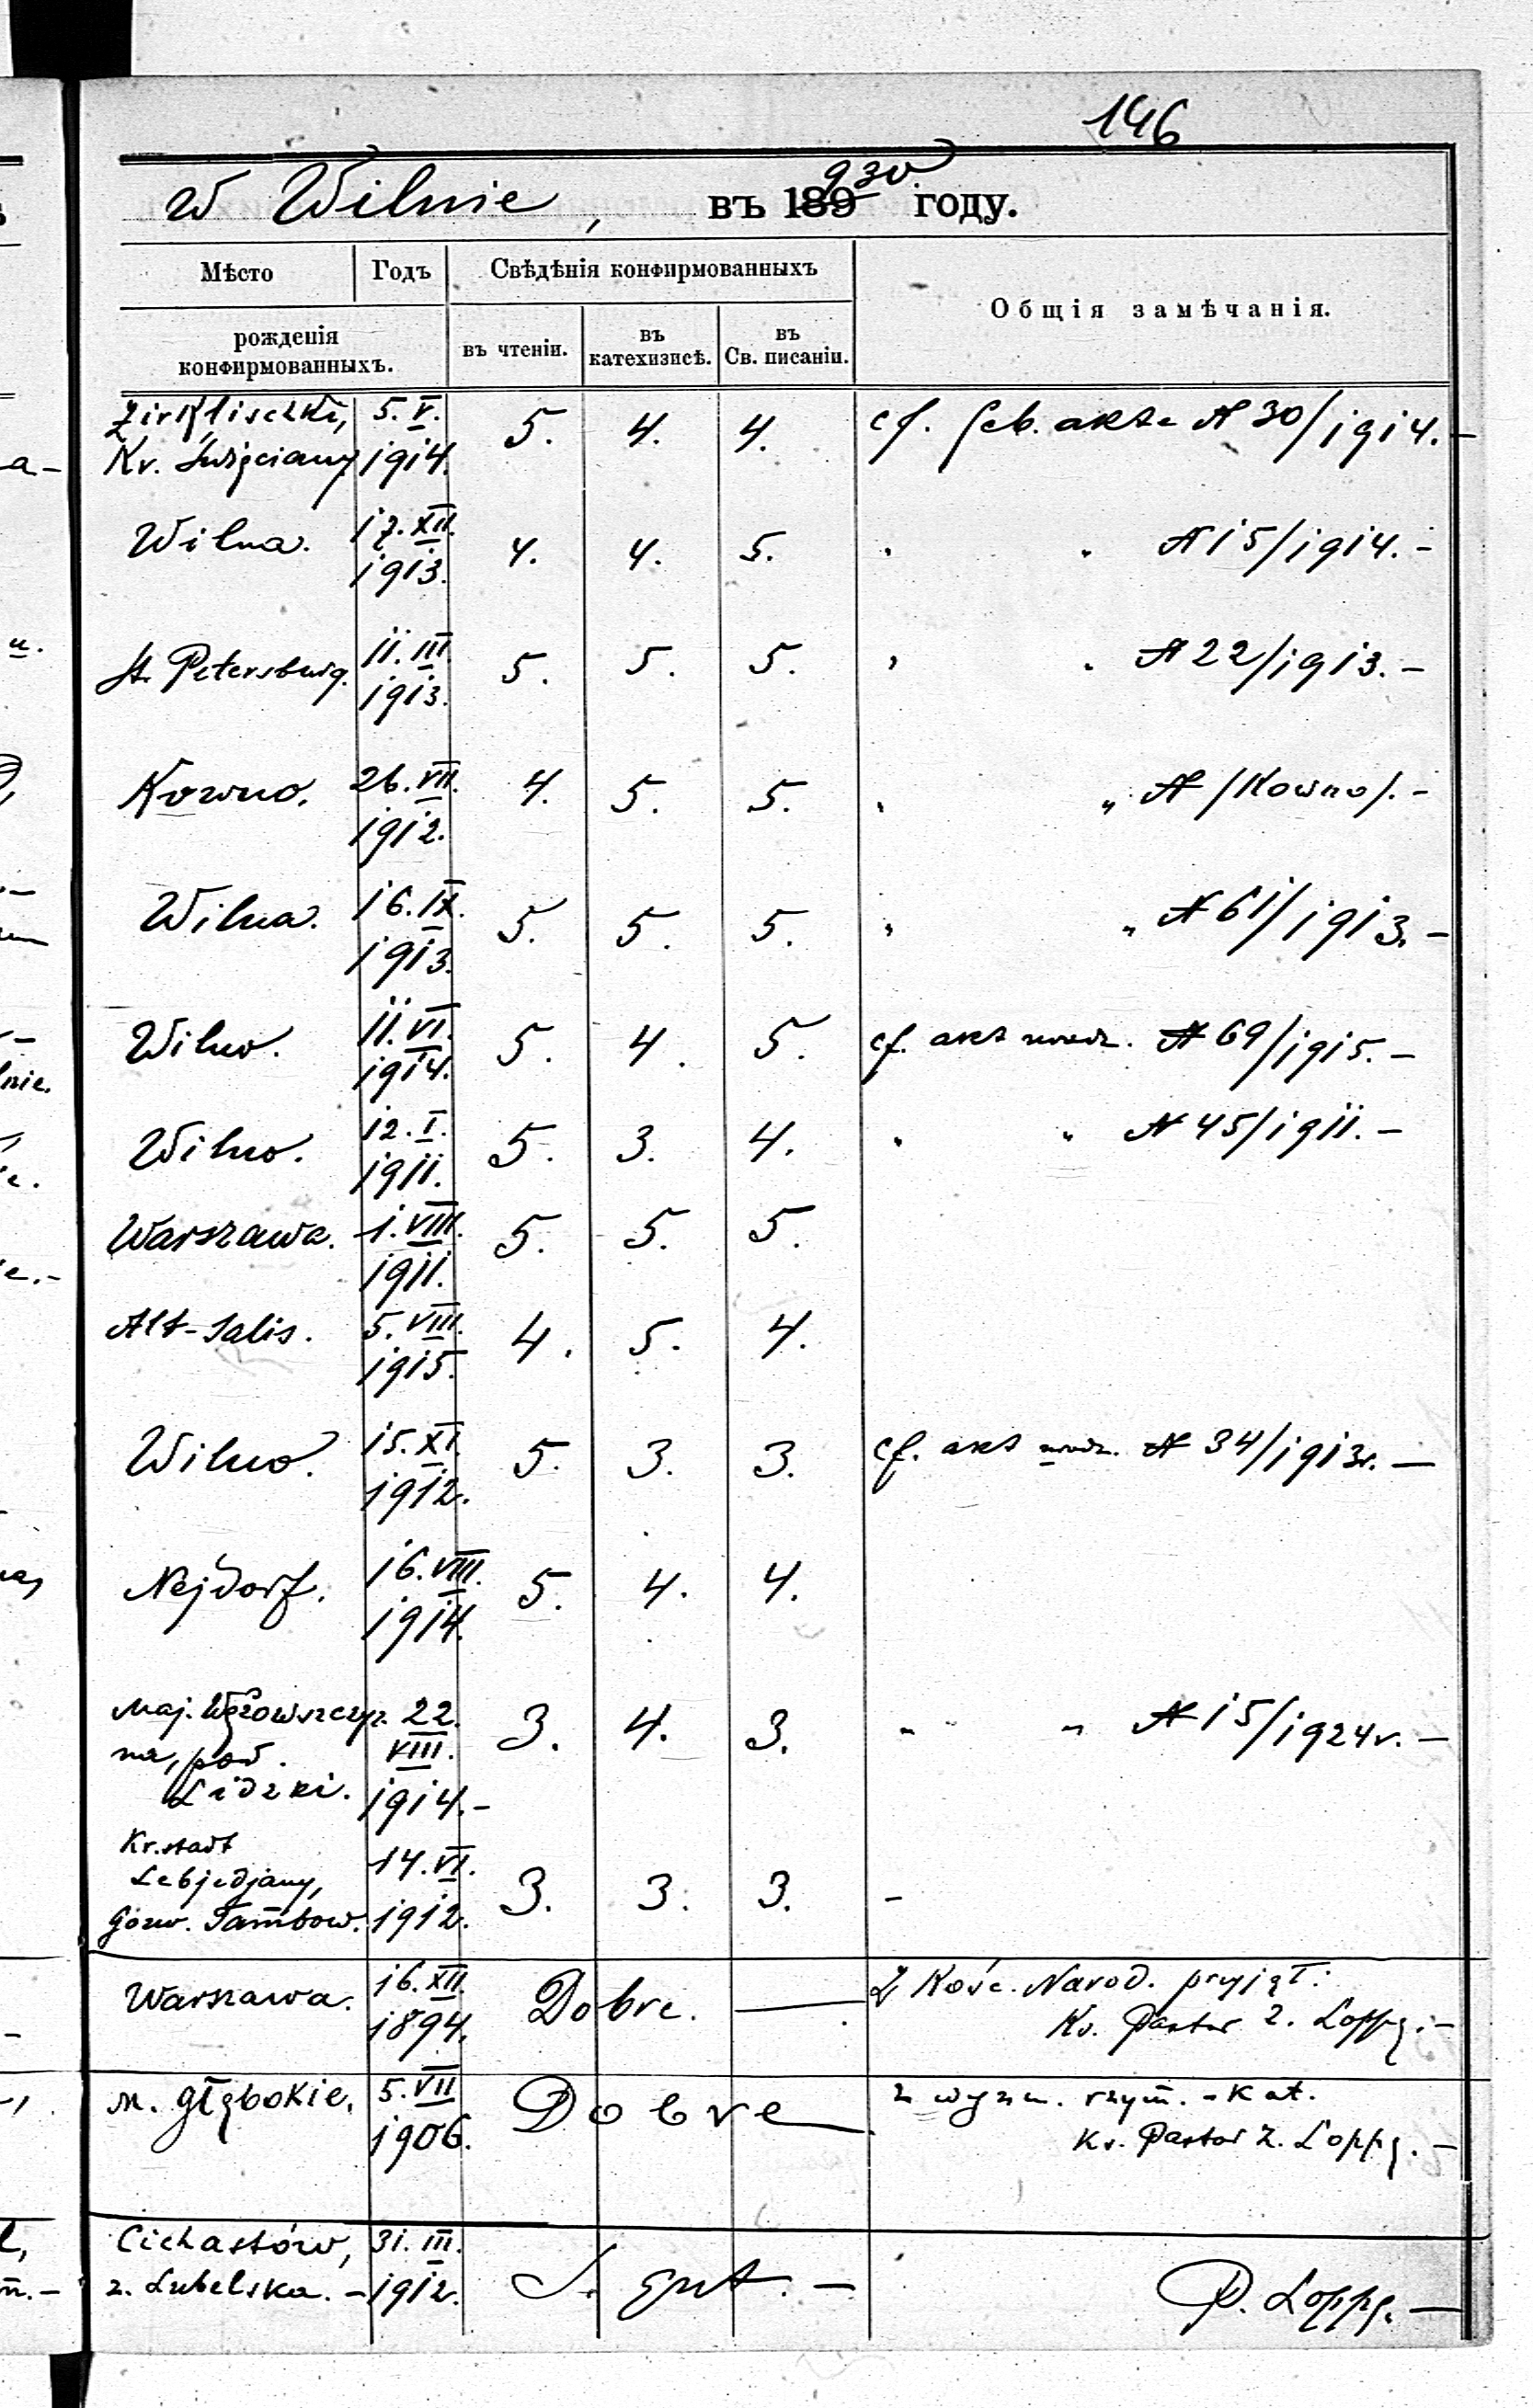 146
w Wilnie, въ 189 930 году.
Мѣсто Годъ Свѣдѣнія конфирмованныхъ Общія замѣчанія.
рожденія конфирмованныхъ. въ чтеніи. въ катехизисѣ. въ Св. писаніи.
Zirklischki, 5. V. 5. 4. 4. cf. Geb. akte № 30/1914. –
Kr. Święciany 1914.
Wilna. 17. XII. 4. 4. 5. " " № 15/1914. –
1913.
St. Petersburg. 11. III. 5. 5. 5. " " № 22/1913. –
1913.
Kowno. 26. VII. 4. 5. 5. " " № /Kowno/. –
1912.
Wilna. 16. IX. 5. 5. 5. " " № 61/1913. –
1913.
Wilno. 11. VI. 5. 4. 5. cf. akt urodz. № 69/1915. –
1914.
Wilno. 12. I. 5. 3. 4. " " № 45/1911. –
1911.
Warszawa. 1. VIII. 5. 5. 5.
1911.
Alt-Salis. 5. VIII. 4. 5. 4.
1915.
Wilno. 15. XI. 5. 3. 3. cf. akt urodz. № 34/1913r. –
1912.
Nejdorf. 16. VIII. 5. 4. 4.
1914.
Maj. Wężowszczyz- 22. 3. 4. 3. " " " № 15/1924r. –
na, pow. VIII.
Lidzki. 1914. –
Kr. stadt
Lebjedjany, 14. VI. 3. 3. 3. –
Gouv. Tambow. 1912.
Warszawa. 16. XII. Dobre. — Z Kośc. Narod. pryjął:
1894. Ks. Pastor Z. Loppe. –
m. Głębokie, 5. VII Dobre z wyzn. rzym. - kat.
1906. Ks. Pastor Z. Loppe. –
Cichostów, 31. III.
z. Lubelska. – 1912. S. gut. – P. Loppe. –